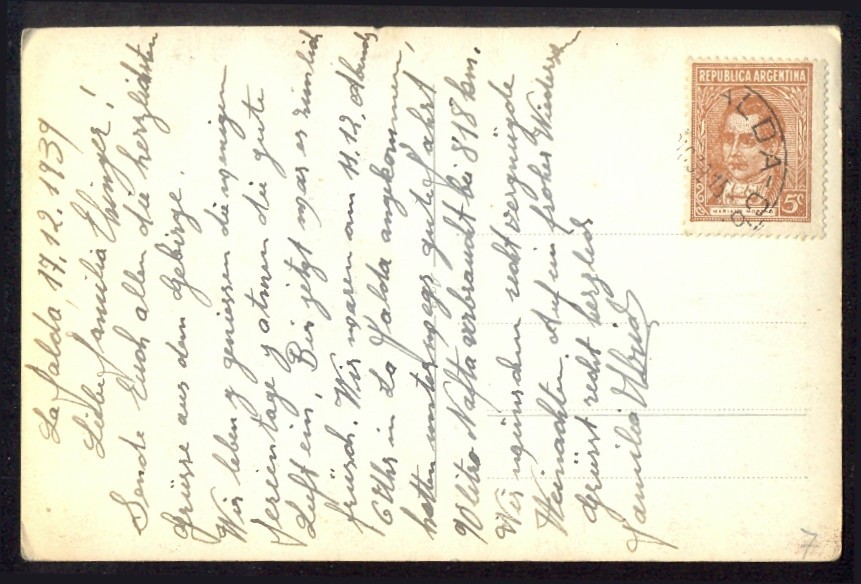 La Falda, 17.12.1939
Liebe Familie Ehinger!
Sende Euch allen die herzlichsten
Grüsse aus dem Gebirge.
Wir leben y geniessen die wenigen
Ferientage y atmen die gute
Luft ein. Bis jetzt war es ziemlich
frisch. Wir waren am 11.12. Abends
6 Uhr in La Falda angekommen,
hatten unterwegs gute Fahrt
Litro Nafta verbraucht bei 818 km.
Wir wünschen recht vergnügte
Weinachten. Auf ein frohes Wiedersehn
Grüsst recht herzlich
Familie
REPUBLICA ARGENTINA
5c
MARIANO MORENO
ALDA
7